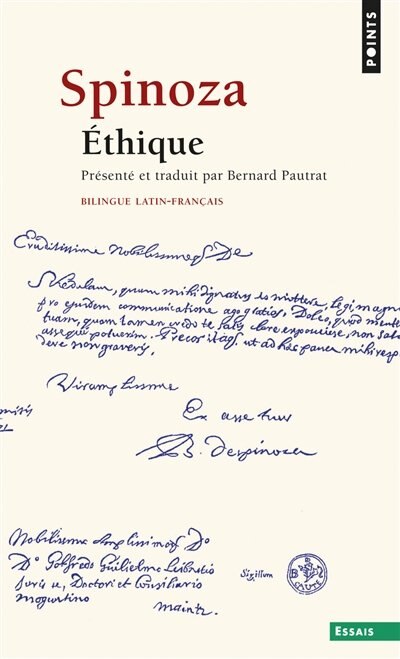 POINTS
Spinoza
Éthique
Présenté et traduit par Bernard Pautrat
BILINGUE LATIN-FRANÇAIS
Eruditissime Nobilissimeqs De
Schedulam, quam mihi dignatus es mittere, legi, magna
pro ejusdem communicatione ago gratias, Doleo, quod mente
tuam, quam tamen credo te satis clare exposuisse, non sat
assequi potuerim. Precor itaqs, ut ad hæc pauca mihi resp
dere non graveris,
Viramplissime
Ex asse tuus
B. despinoza
Nobilissime Amplissimoqs Do
Do Gotfredo Guilielmo Leibnitio
Juris u, Doctori et Consiliario
mogurtino
maintz.
Sigillum
B
CAUTE
ESSAIS